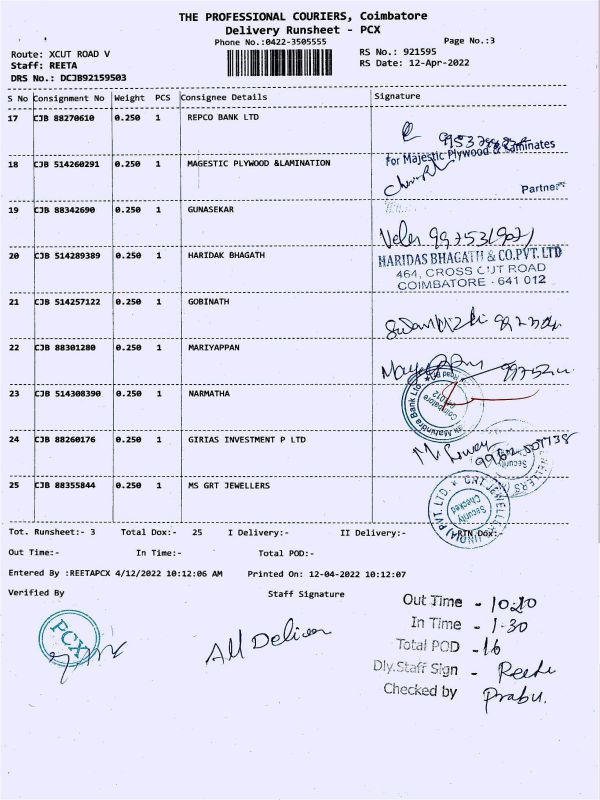 THE PROFESSIONAL COURIERS, Coimbatore
Delivery Runsheet - PCX
Phone No.:0422-3505555
Page No.:3
Route: XCUT ROAD V
RS No.: 921595
Staff: REETA
RS Date: 12-Apr-2022
DRS No.: DCJB92159503
S No Consignment No Weight PCS Consignee Details Signature
17 CJB 88270610 0.250 1 REPCO BANK LTD
for Majestic Plywood & Laminates
18 CJB 514260291 0.250 1 MAGESTIC PLYWOOD &LAMINATION
Partner
19 CJB 88342690 0.250 1 GUNASEKAR
20 CJB 514289389 0.250 1 HARIDAK BHAGATH
HARIDAS BHAGATH & CO.PVT. LTD
464, CROSS CUT ROAD
COIMBATORE - 641 012
21 CJB 514257122 0.250 1 GOBINATH
22 CJB 88301280 0.250 1 MARIYAPPAN
23 CJB 514308390 0.250 1 NARMATHA
24 CJB 88260176 0.250 1 GIRIAS INVESTMENT P LTD
25 CJB 88355844 0.250 1 MS GRT JEWELLERS
GRT JEWELLERS (INDIA) PVT. LTD.
Security
Checked
Tot. Runsheet:- 3 Total Dox:- 25 I Delivery:- II Delivery:- RTN Dox:-
Out Time:- In Time:- Total POD:-
Entered By :REETAPCX 4/12/2022 10:12:06 AM Printed On: 12-04-2022 10:12:07
Verified By Staff Signature
PCX
Out Time - 10:20
In Time - 1-30
Total POD - 16
Dly.Staff Sign - Reeta
Checked by Prabu.